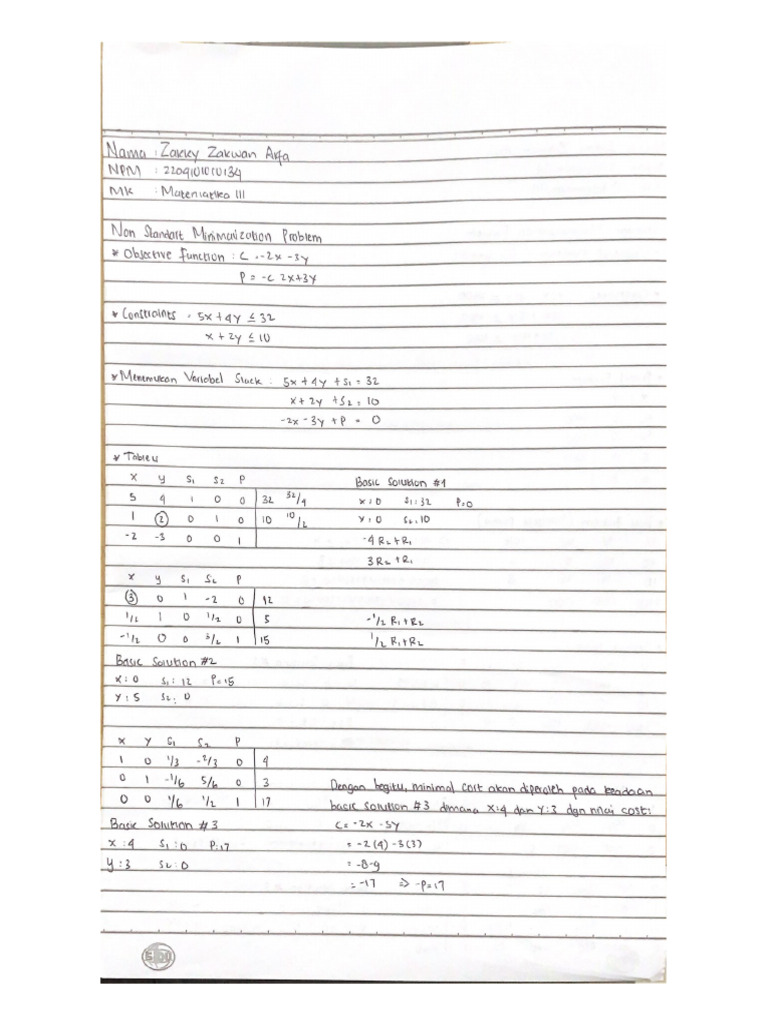 Nama : Zakky Zakwan Arfa
NPM : 2209101010134
MK : Matematika III
Non Standart Minimalization Problem
* Objective Function : C = -2x -3y
P = -C 2x+3y
* Constraints : 5x + 4y ≤ 32
x + 2y ≤ 10
* Menemukan Variabel Slack : 5x + 4y + S1 = 32
x + 2y + S2 = 10
-2x - 3y + P = 0
* Tableu
x y S1 S2 P Basic Solution #1
5 4 1 0 0 | 32 32/4 x=0 S1:32 P=0
1 2 0 1 0 | 10 10/2 y=0 S2=10
-2 -3 0 0 1 | -4R2+R1
3R2+R1
x y S1 S2 P
3 0 1 -2 0 | 12
1/2 1 0 1/2 0 | 5 -1/2 R1+R2
-1/2 0 0 3/2 1 | 15 1/2 R1+R2
Basic Solution #2
x:0 S1:12 P=15
y:5 S2:0
x y S1 S2 P
1 0 1/3 -2/3 0 | 4
0 1 -1/6 5/6 0 | 3 Dengan begitu, minimal cost akan diperoleh pada keadaan
0 0 1/6 1/2 1 | 17 basic solution #3 dimana x:4 dan y:3 dgn nilai cost:
Basic Solution #3 C = -2x -3y
x:4 S1:0 P:17 = -2(4) -3(3)
y:3 S2:0 = -8-9
= -17 => -P=17
SIDU